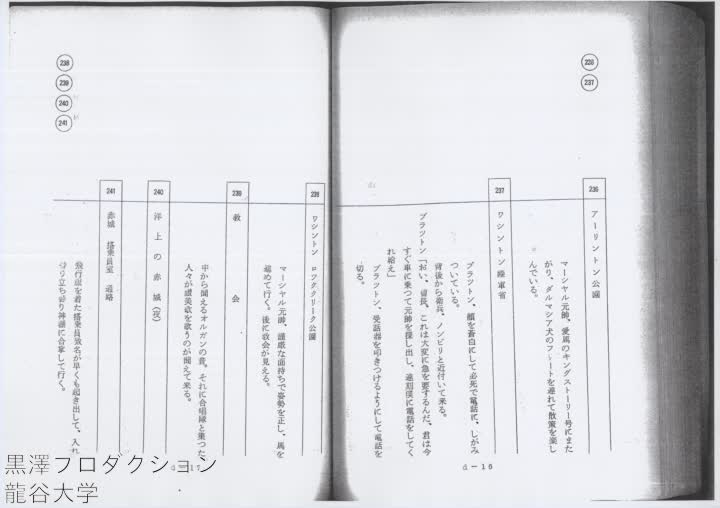 236
237
236
アーリントン公園
マーシャル元帥、愛馬のキングストーリー号にまた
がり、ダルマシア犬のフリートを連れて散策を楽し
んでいる。
237
ワシントン陸軍省
ブラットン、顔を蒼白にして必死で電話に、しがみ
ついている。
背後から衛兵、ノンビリと近付いて来る。
ブラットン「おい、曹長、これは大変に急を要するんだ、君は今
すぐ車に乗つて元帥を探し出し、連刻僕に電話をしてく
れ給え」
ブラットン、受話器を叩きつけるようにして電話を
切る。
d－16
238
239
240
241
238
ワシントン ロッククリーク公園
マーシャル元帥、謹厳な面持ちで姿勢を正し、馬を
進めて行く。後に教会が見える。
239
教会
中から聞えるオルガンの音。それに合唱隊と集つた
人々が讃美歌を歌うのが聞えて来る。
240
洋上の赤城（夜）
241
赤城 搭乗員室 通路
飛行服を着た搭乗員数名が早くも起き出して、入れ
替り立ち替り神棚に合掌して行く。
d－17
黒澤プロダクション
龍谷大学